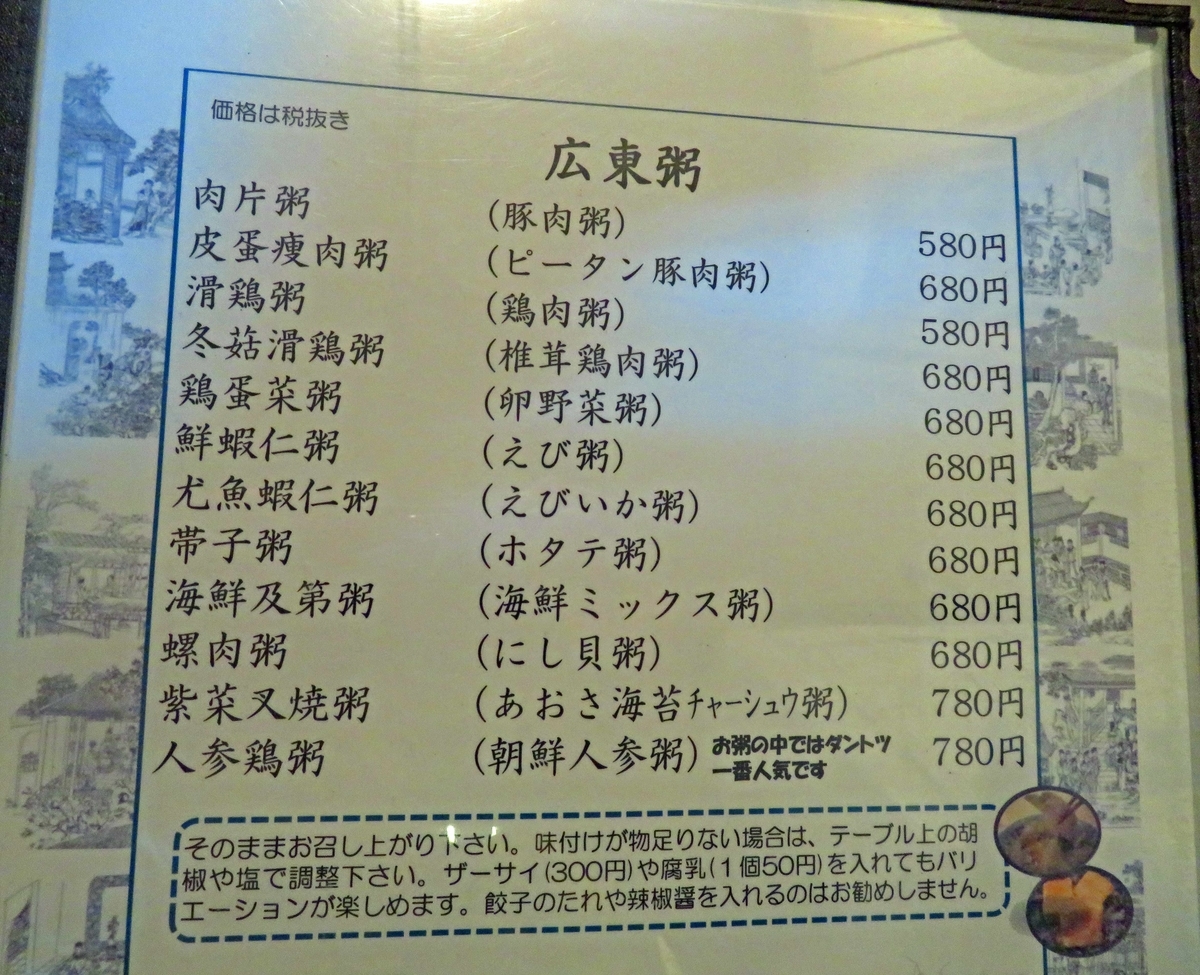 価格は税抜き
広東粥
肉片粥 (豚肉粥) 580円
皮蛋痩肉粥 (ピータン豚肉粥) 680円
滑鶏粥 (鶏肉粥) 580円
冬菇滑鶏粥 (椎茸鶏肉粥) 680円
鶏蛋菜粥 (卵野菜粥) 680円
鮮蝦仁粥 (えび粥) 680円
尤魚蝦仁粥 (えびいか粥) 680円
帯子粥 (ホタテ粥) 680円
海鮮及第粥 (海鮮ミックス粥) 680円
螺肉粥 (にし貝粥) 680円
紫菜叉焼粥 (あおさ海苔チャーシュウ粥) 780円
人参鶏粥 (朝鮮人参粥) お粥の中ではダントツ 780円
一番人気です
そのままお召し上がり下さい。味付けが物足りない場合は、テーブル上の胡
椒や塩で調整下さい。ザーサイ(300円)や腐乳(1個50円)を入れてもバリ
エーションが楽しめます。餃子のたれや辣椒醤を入れるのはお勧めしません。